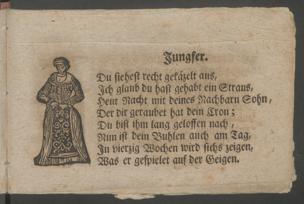 Jungfer.
Du siehest recht gekäzelt aus,
Ich glaub du hast gehabt ein Straus,
Heut Nacht mit deines Nachbarn Sohn,
Der dir geraubet hat dein Cron;
Du bist ihm lang geloffen nach,
Nun ist dein Buhlen auch am Tag,
In vierzig Wochen wird sichs zeigen,
Was er gespielet auf der Geigen.